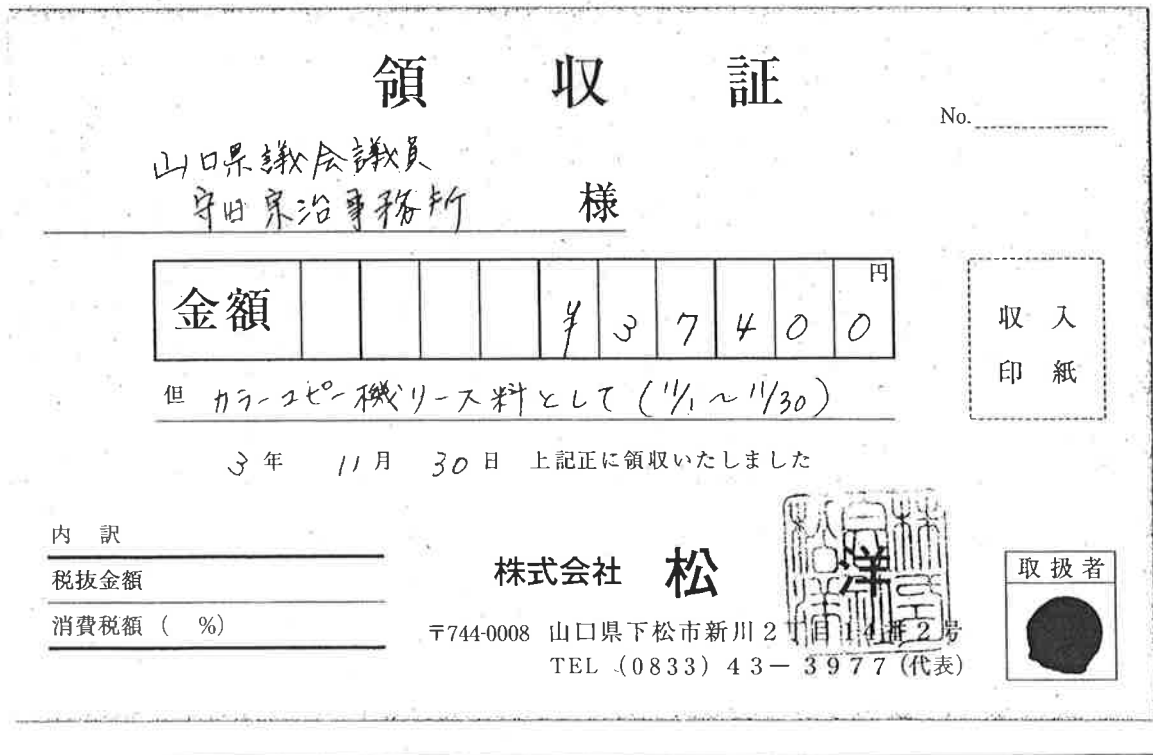 領収証
No.
山口県議会議員
守田宗治事務所 様
金額 ¥37400円
収入
印紙
但 カラーコピー機リース料として(11/1~11/30)
3年 11月 30日 上記正に領収いたしました
内訳
税抜金額
消費税額( %)
株式会社 松洋
〒744-0008 山口県下松市新川2丁目14番2号
TEL (0833)43-3977(代表)
取扱者